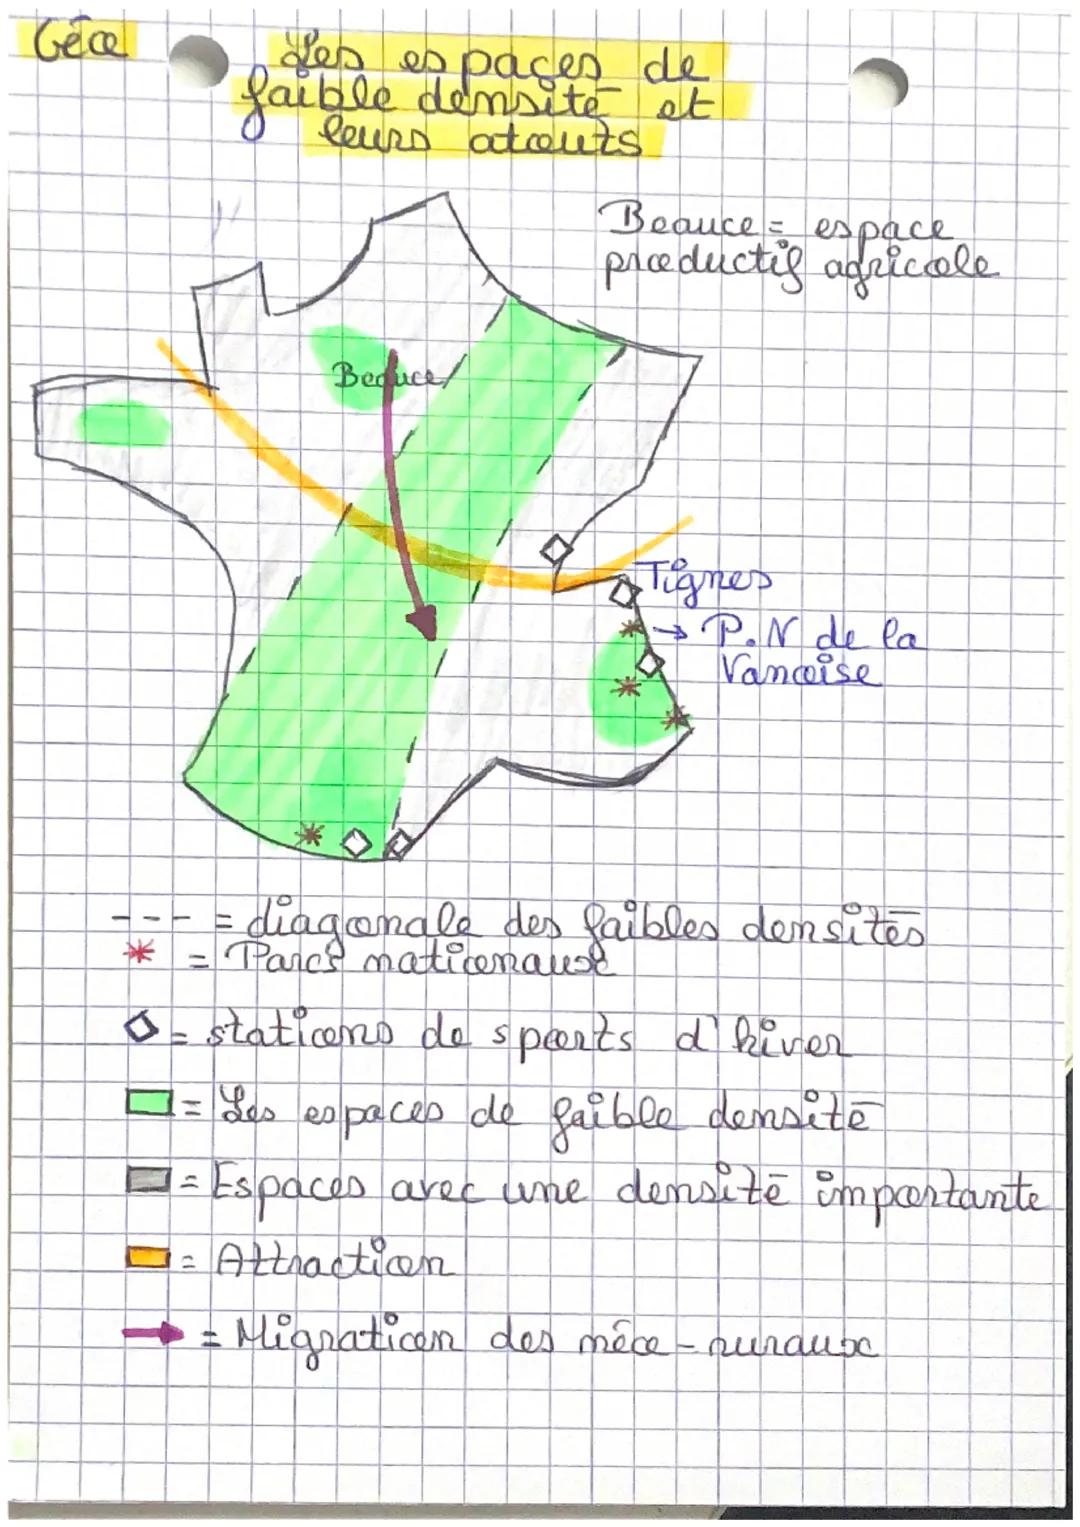 Géo
Les espaces de
faible densité et
leurs atouts
Beauce = espace
productif agricole
Beauce
Tignes
→ P.N de la
Vanoise
--- = diagonale des faibles densités
* = Parcs nationaux
◇ = stations de sports d'hiver
= Les espaces de faible densité
= Espaces avec une densité importante
= Attraction
→ = Migration des néo-ruraux